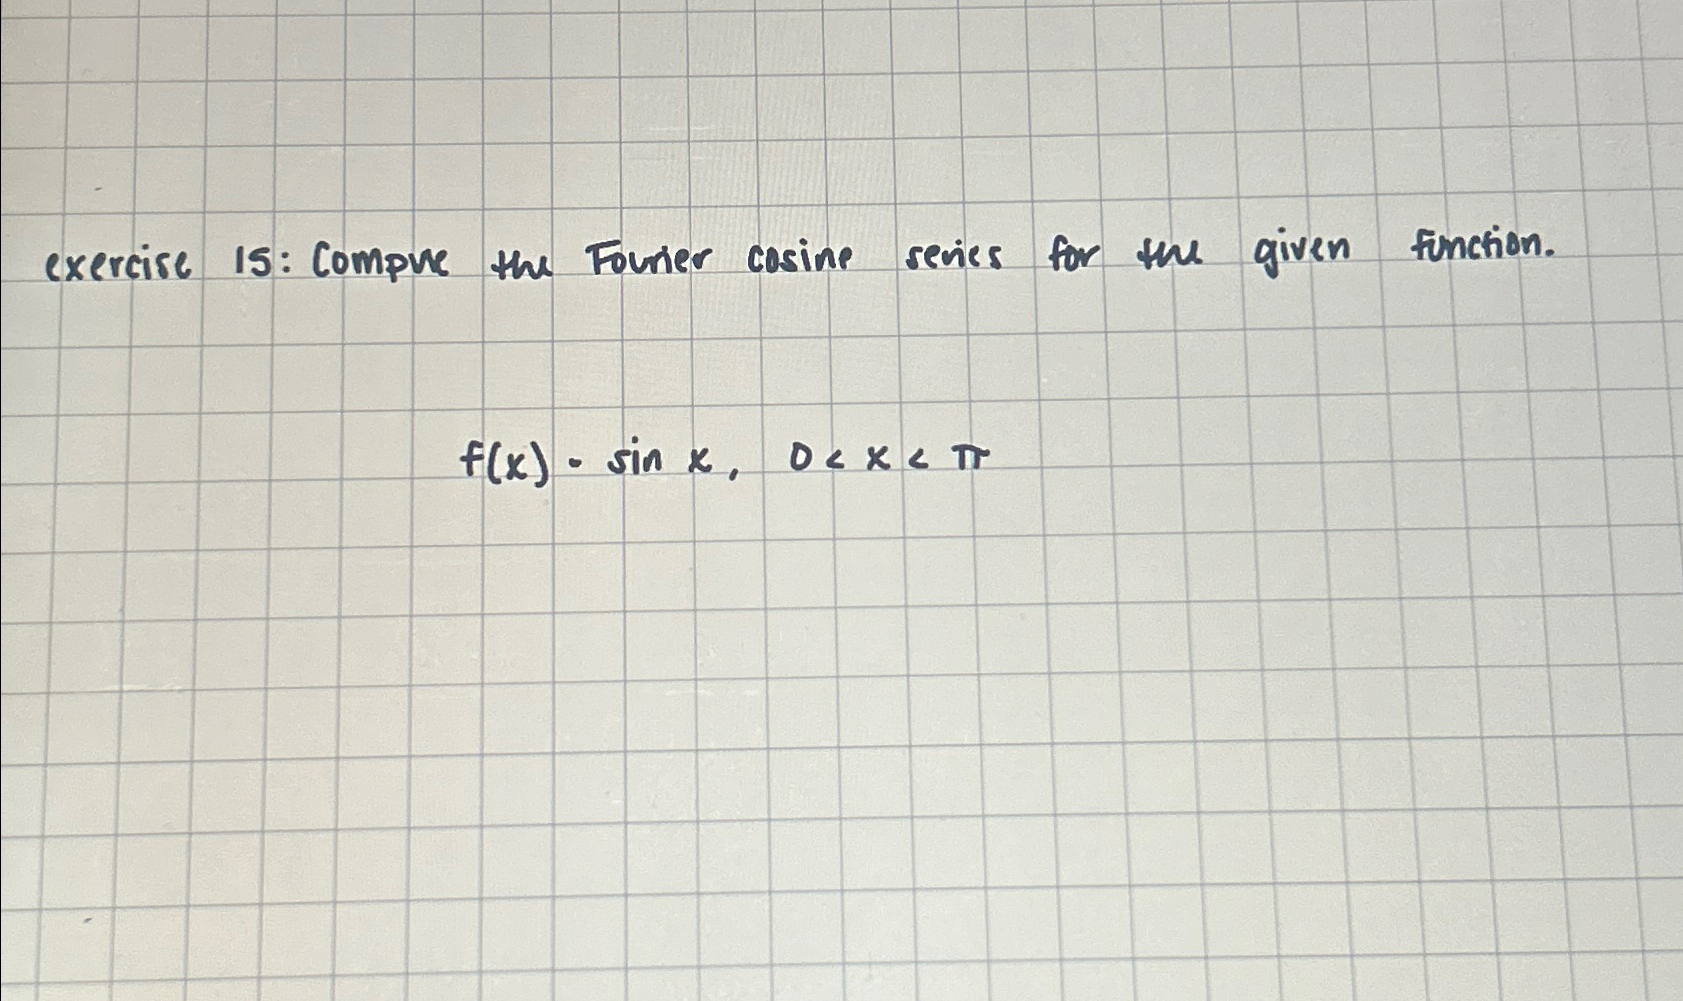 exercise 15: Compute the Fourier cosine series for the given function.
f(x) = sin x, 0 < x < π